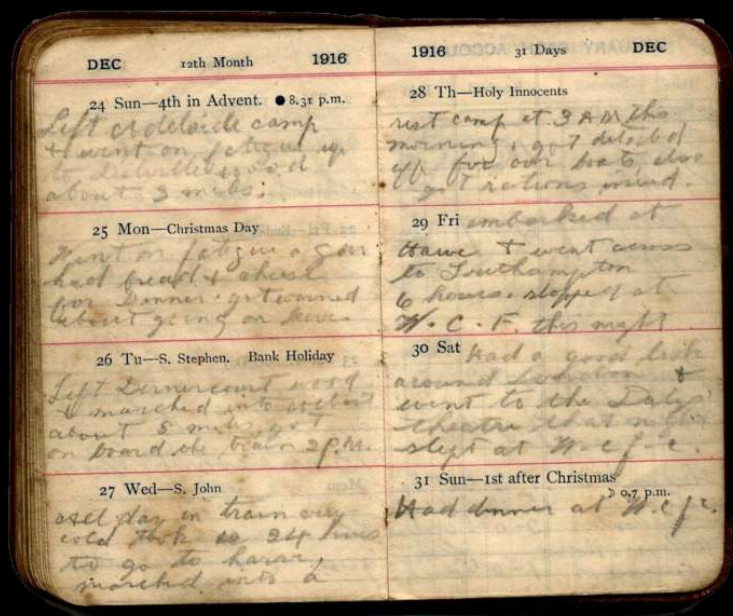 DEC 12th Month 1916
24 Sun—4th in Advent. ● 8.31 p.m.
Left Adelaide camp
& went on fatigue up
to Delville wood
about 3 miles.
25 Mon—Christmas Day
Went on fatigue again
had bread & cheese
for Dinner. got warned
about going on leave.
26 Tu—S. Stephen. Bank Holiday
Left Dernancourt wood
& marched into
about 8 miles got
on board the train 2 P.M.
27 Wed—S. John
All day in train very
cold took us 24 hours
to go to
marched into a
1916 31 Days DEC
28 Th—Holy Innocents
rest camp at 3 AM this
morning, got
off for our boats also
got rations
29 Fri embarked at
Havre & went across
to Southampton
6 hours. stopped at
W. C. F. this night
30 Sat Had a good look
around London &
went to the Dalys
theatre that night
slept at W. C. F. C.
31 Sun—1st after Christmas
☽ 0.7 p.m.
Had dinner at W. C. F. C.